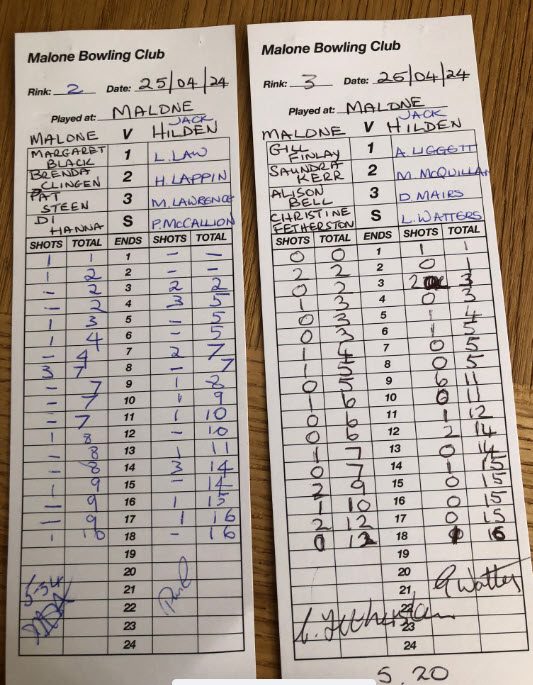 Malone Bowling Club
Rink: 2 Date: 25/04/24
Played at: MALONE
JACK
MALONE V HILDEN
MARGARET BLACK 1 L. LAW
BRENDA CLINGEN 2 H. LAPPIN
PAT STEEN 3 M. LAWRENCE
DI HANNA S P. McCALLION
SHOTS TOTAL ENDS SHOTS TOTAL
1 1 1 - -
1 2 2 - -
- 2 3 2 2
- 2 4 3 5
1 3 5 - 5
1 4 6 - 5
- 4 7 2 7
3 7 8 - 7
- 7 9 1 8
- 7 10 1 9
- 7 11 1 10
1 8 12 - 10
- 8 13 1 11
- 8 14 3 14
1 9 15 - 14
- 9 16 1 15
- 9 17 1 16
1 10 18 - 16
19
20
5-34 21
22
23
24
Malone Bowling Club
Rink: 3 Date: 25/04/24
Played at: MALONE
JACK
MALONE V HILDEN
GILL FINLAY 1 A. LIGGETT
SAUNDRA KERR 2 M. McQUILLAN
ALISON BELL 3 D MAIRS
CHRISTINE FETHERSTON S L. WATTERS
SHOTS TOTAL ENDS SHOTS TOTAL
0 0 1 1 1
2 2 2 0 1
0 2 3 2 3
1 3 4 0 3
0 3 5 1 4
0 3 6 1 5
1 4 7 0 5
1 5 8 0 5
0 5 9 6 11
1 6 10 0 11
0 6 11 1 12
0 6 12 2 14
1 7 13 0 14
0 7 14 1 15
2 9 15 0 15
1 10 16 0 15
2 12 17 0 15
0 12 18 1 16
19
20
21
22
23
24
5.20